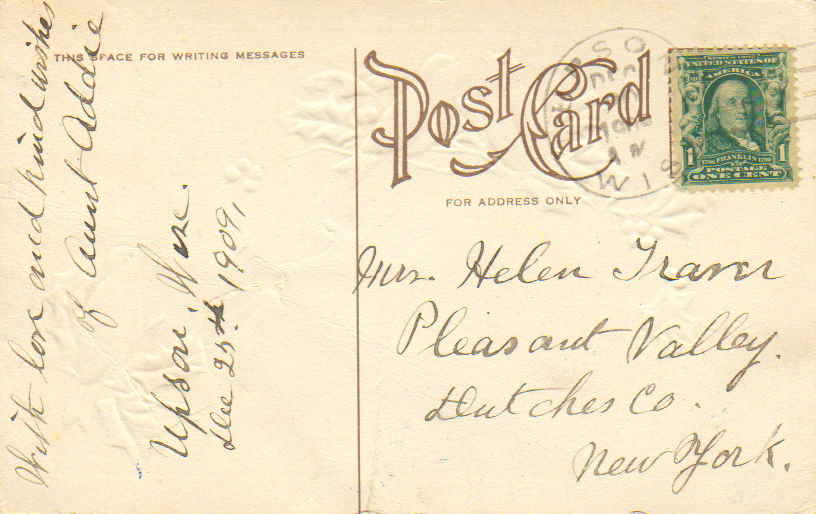 THIS SPACE FOR WRITING MESSAGES
With love and kind wishes
of Aunt Addie
Upson, Wisc.
Dec 25th 1909,
Post Card
FOR ADDRESS ONLY
UNITED STATES OF
AMERICA
1
FRANKLIN
POSTAGE
ONE CENT
WIS
Mrs. Helen Traver
Pleasant Valley.
Dutches Co.
New York.